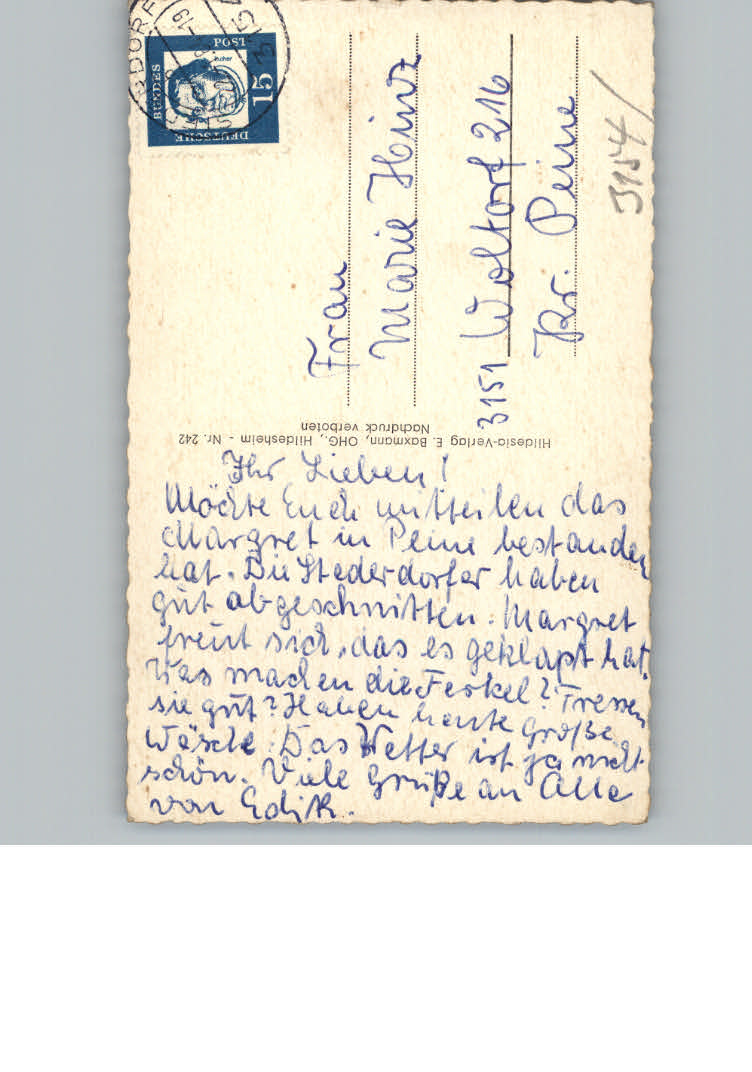 Ihr Lieben!
Möchte Euch mitteilen das
Margret in Peine bestanden
hat. Die Stederdorfer haben
gut abgeschnitten. Margret
freut sich, das es geklapt hat.
Was machen die Ferkel? Fressen
sie gut? Haben heute Große
Wäsche. Das Wetter ist ja nicht
schön. Viele Grüße an Alle
von Edith.
Hildesia-Verlag E. Baxmann, OHG., Hildesheim - Nr. 242
Nachdruck verboten
Frau
Marie Hinz
3151 Woltorf 216
Kr. Peine
3154/
DEUTSCHE
BUNDES
POST
15